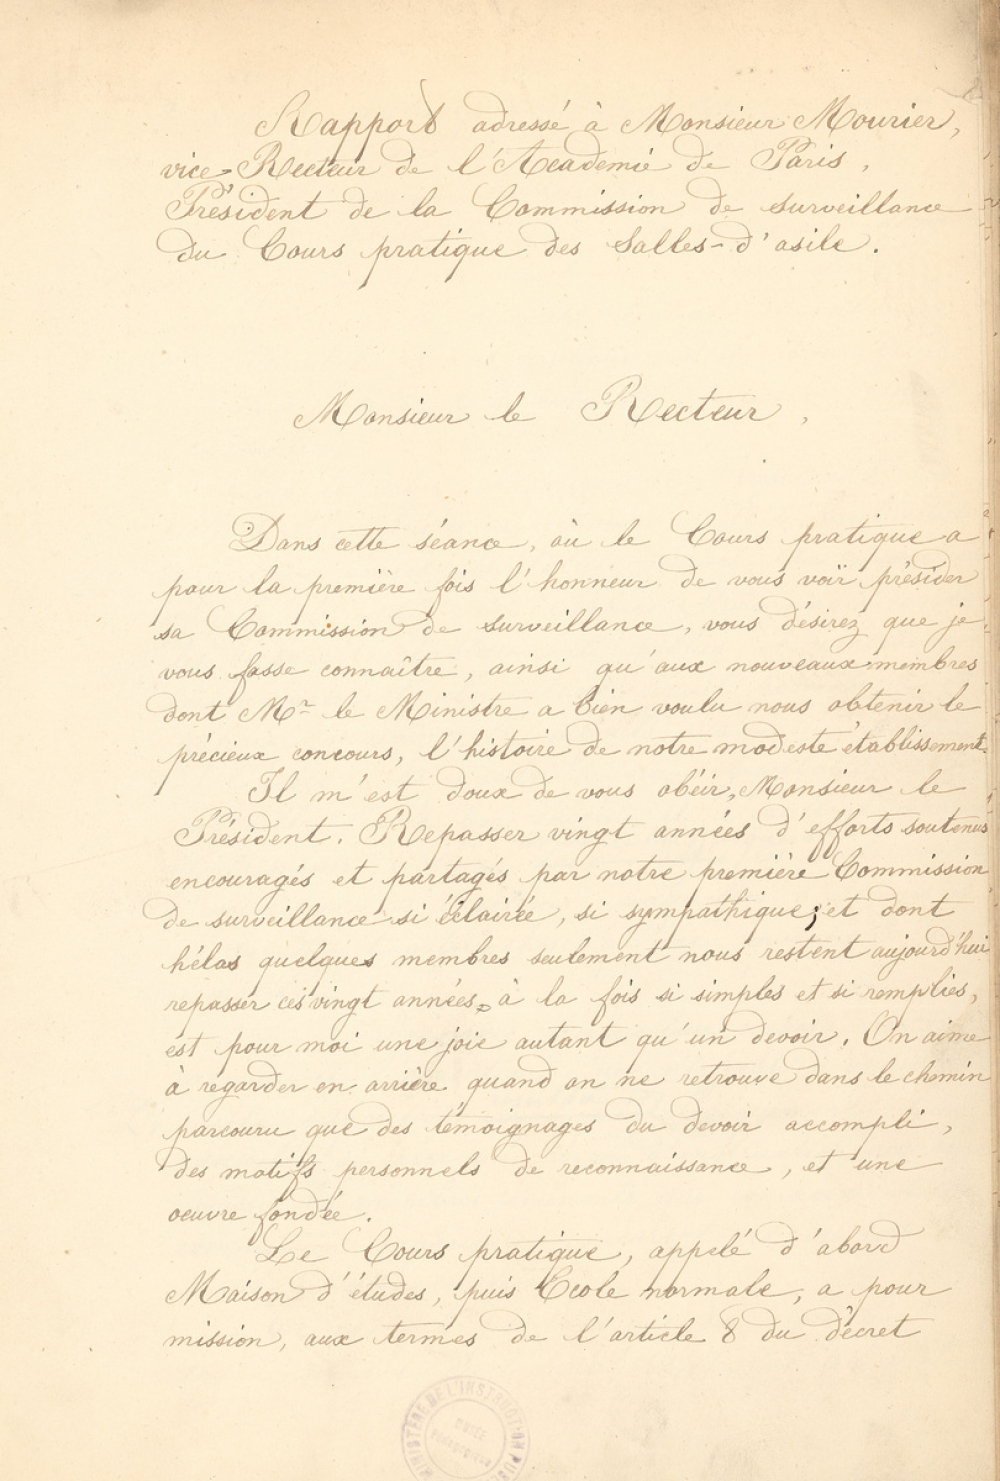 Rapport adressé à Monsieur Mourier,
vice-Recteur de l'Academie de Paris,
Président de la Commission de surveillance
du Cours pratique des Salles-d'asile.
Monsieur le Recteur,
Dans cette séance, où le Cours pratique a
pour la première fois l'honneur de vous voir présider
sa Commission de surveillance, vous désirez que je
vous fasse connaître, ainsi qu'aux nouveaux membres
dont Mr le Ministre a bien voulu nous obtenir le
précieux concours, l'histoire de notre modeste établissement.
Il m'est doux de vous obéir, Monsieur le
Président. Repasser vingt années d'efforts soutenus
encouragés et partagés par notre première Commission
de surveillance si éclairée, si sympathique; et dont
hélas quelques membres seulement nous restent aujourd'hui
repasser ces vingt années, à la fois si simples et si remplies,
est pour moi une joie autant qu'un devoir. On aime
à regarder en arrière quand on ne retrouve dans le chemin
parcouru que des témoignages du devoir accompli,
des motifs personnels de reconnaissance, et une
oeuvre fondée.
Le Cours pratique, appelé d'abord
Maison d'études, puis Ecole normale, a pour
mission, aux termes de l'article 8 du décret
MINISTÈRE DE L'INSTRUCTION PUB
MUSÉE
PÉDAGOGIQUE